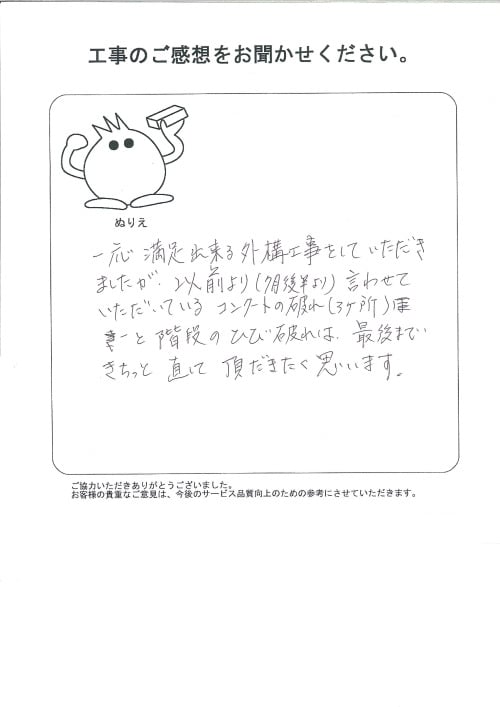 工事のご感想をお聞かせください。
ぬりえ
一応満足出来る外構工事をしていただき
ましたが、以前より(7月後半より)言わせて
いただいているコンクートの破れ(3ヶ所)
と階段のひび破れは、最後まで
きちっと直して頂だきたく思います。
ご協力いただきありがとうございました。
お客様の貴重なご意見は、今後のサービス品質向上のための参考にさせていただきます。